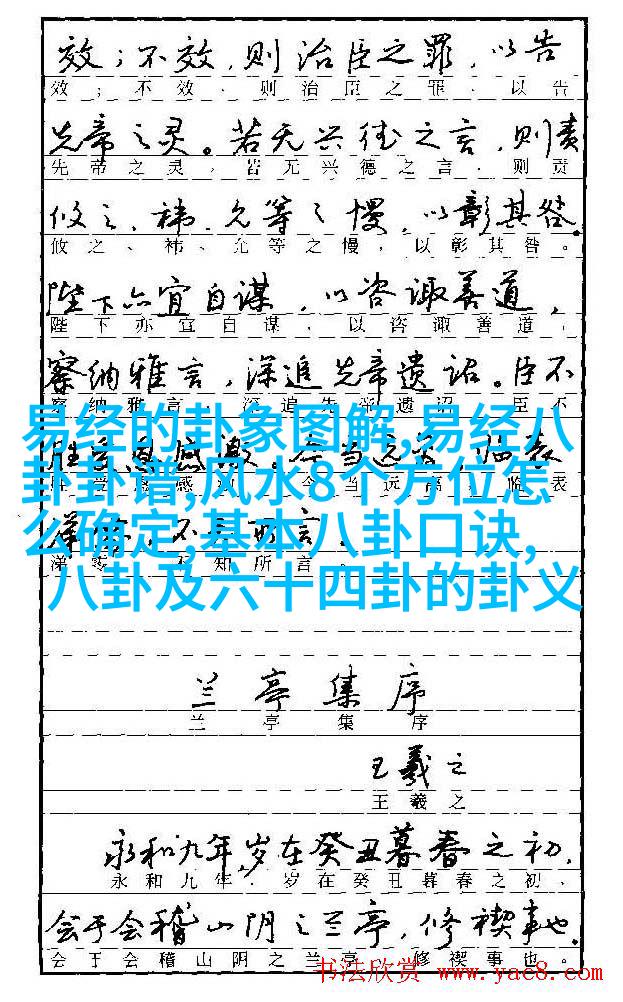 效；不效，则治臣之罪，以告
效；不效，则治臣之罪，以告
先帝之灵。若无兴德之言，则责
先帝之灵，若无兴德之言，则责
攸之、祎、允等之慢，以彰其咎。
攸之、祎、允等之慢，以彰其咎。
陛下亦宜自谋，以咨诹善道，
陛下亦宜自谋，以咨诹善道，
察纳雅言，深追先帝遗诏。臣不
察纳雅言，深追先帝遗诏。臣不
易经的卦象图解,易经八
卦卦谱,风水8个方位怎
么确定,基本八卦口诀,
八卦及六十四卦的卦义
感激。今当远离，临表
不知所言。
涕零，不知所言。
兰亭集序
兰亭集序
王羲之
王羲之
永和九年，岁在癸丑暮春之初，
永和九年，岁在癸丑暮春之初、
会于会稽山阴之兰亭，修禊事也。
会于会稽山阴之兰亭 修禊事也。
书法欣赏 www.yac8.com